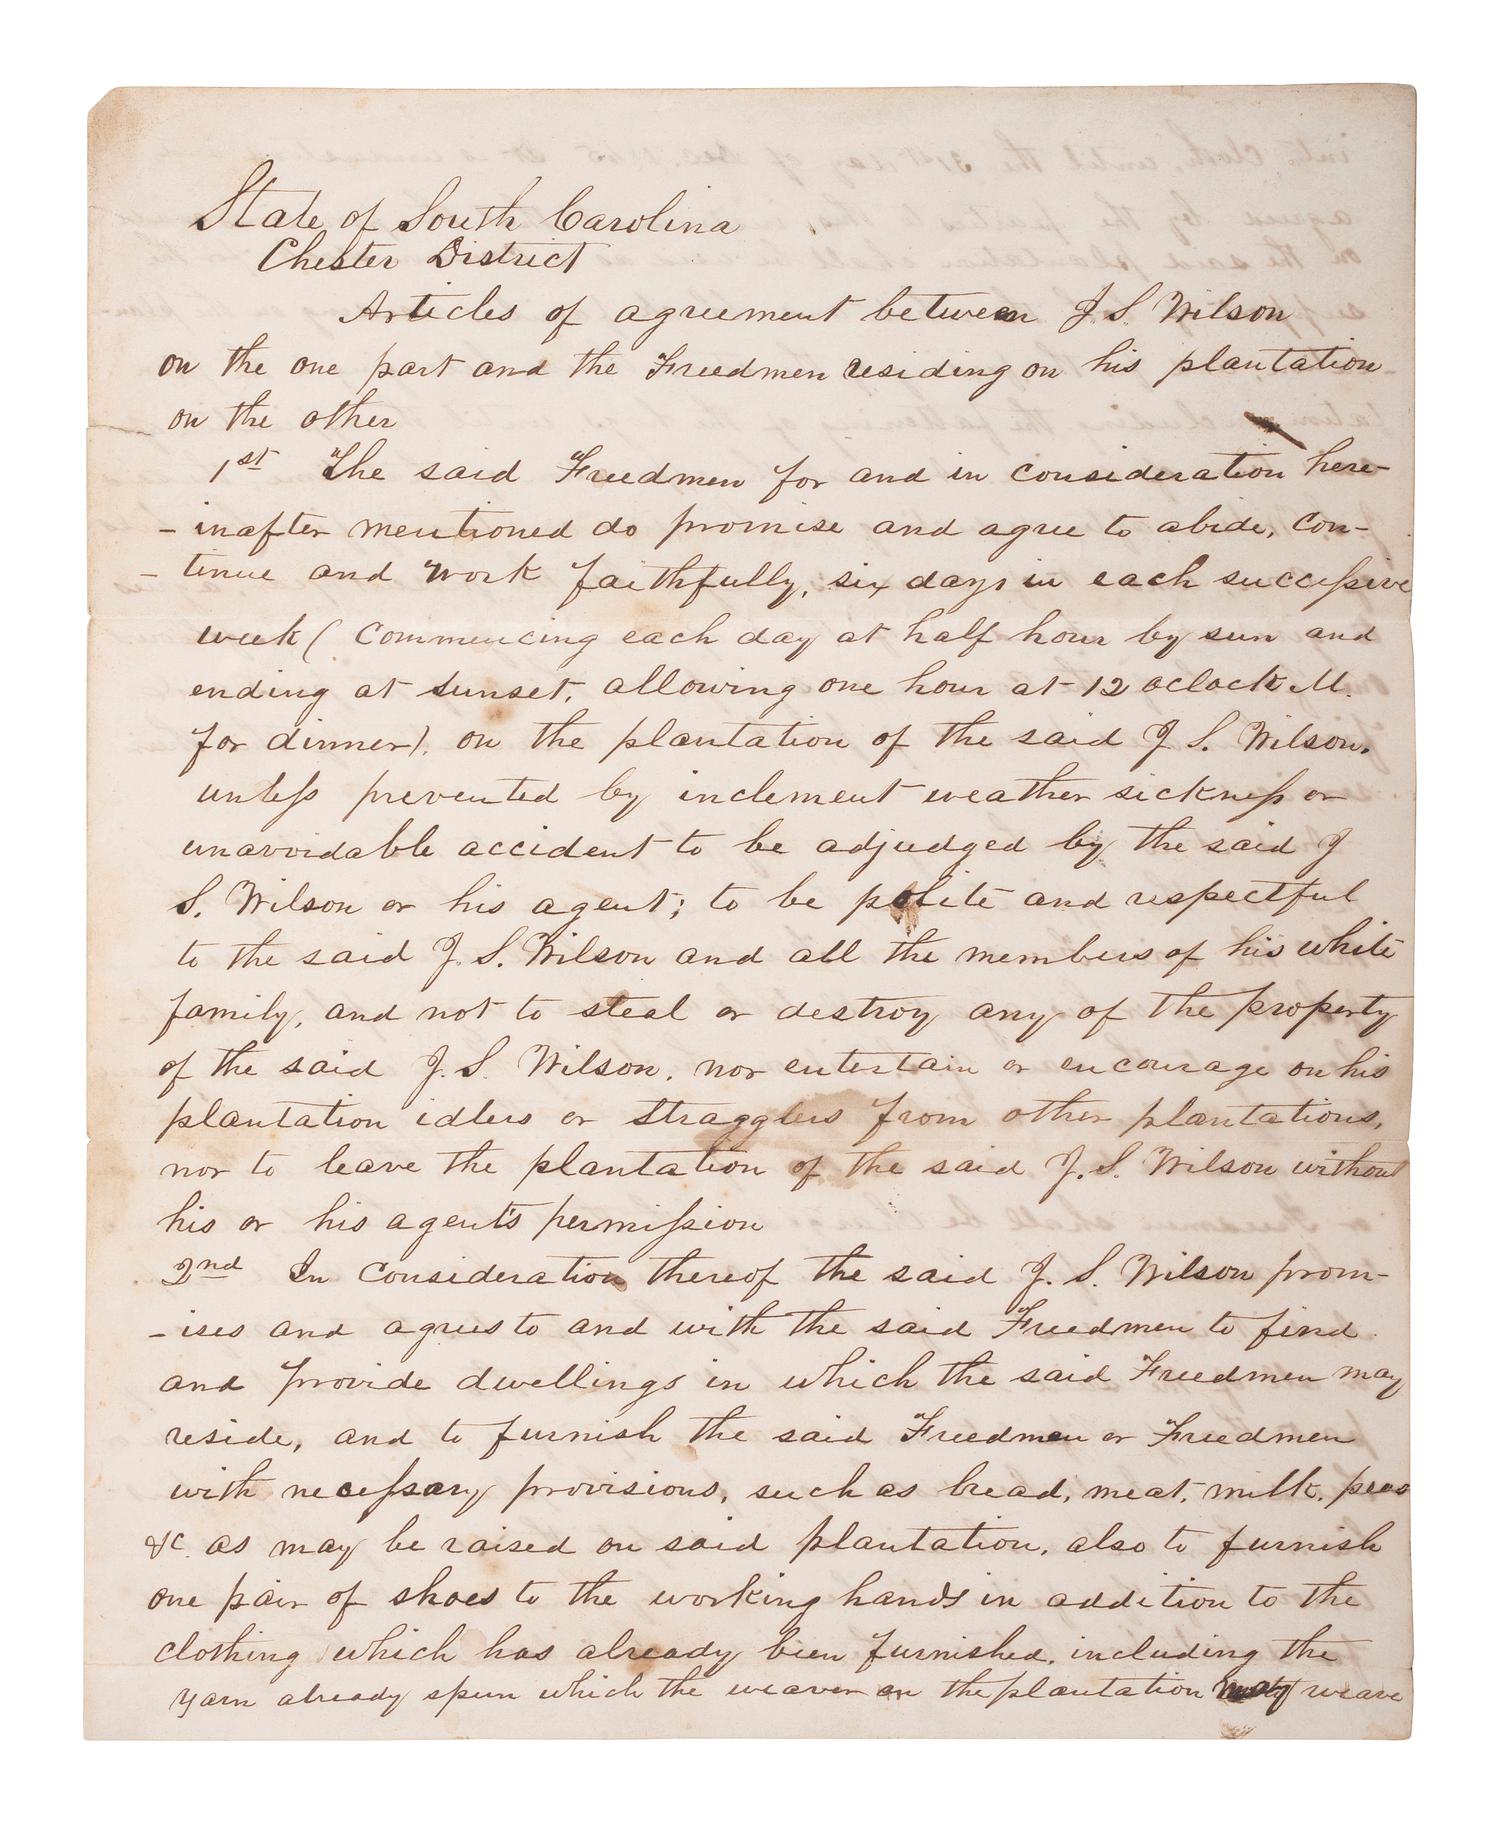 State of South Carolina
Chester District
Articles of agreement between J. S. Wilson
on the one part and the Freedmen residing on his plantation
on the other
1st The said Freedmen for and in consideration here-
- inafter mentioned do promise and agree to abide, con-
- tinue and work faithfully, six days in each successive
week ( Commencing each day at half hour by sun and
ending at sunset, allowing one hour at 12 oclock M.
for dinner), on the plantation of the said J. S. Wilson.
unless prevented by inclement weather sickness or
unavoidable accident to be adjudged by the said J
S. Wilson or his agent; to be polite and respectful
to the said J. S. Wilson and all the members of his white
family, and not to steal or destroy any of the property
of the said J. S. Wilson, nor entertain or encourage on his
plantation idlers or stragglers from other plantations,
nor to leave the plantation of the said J. S. Wilson without
his or his agent's permission
2nd In Consideration thereof the said J. S. Wilson prom-
- ises and agrees to and with the said Freedmen to find
and provide dwellings in which the said Freedmen may
reside, and to furnish the said Freedmen or Freedmen
with necessary provisions, such as bread, meat, milk, peas
&c. as may be raised on said plantation, also to furnish
one pair of shoes to the working hands in addition to the
clothing which has already been furnished, including the
yarn already spun which the weaver on the plantation may weave